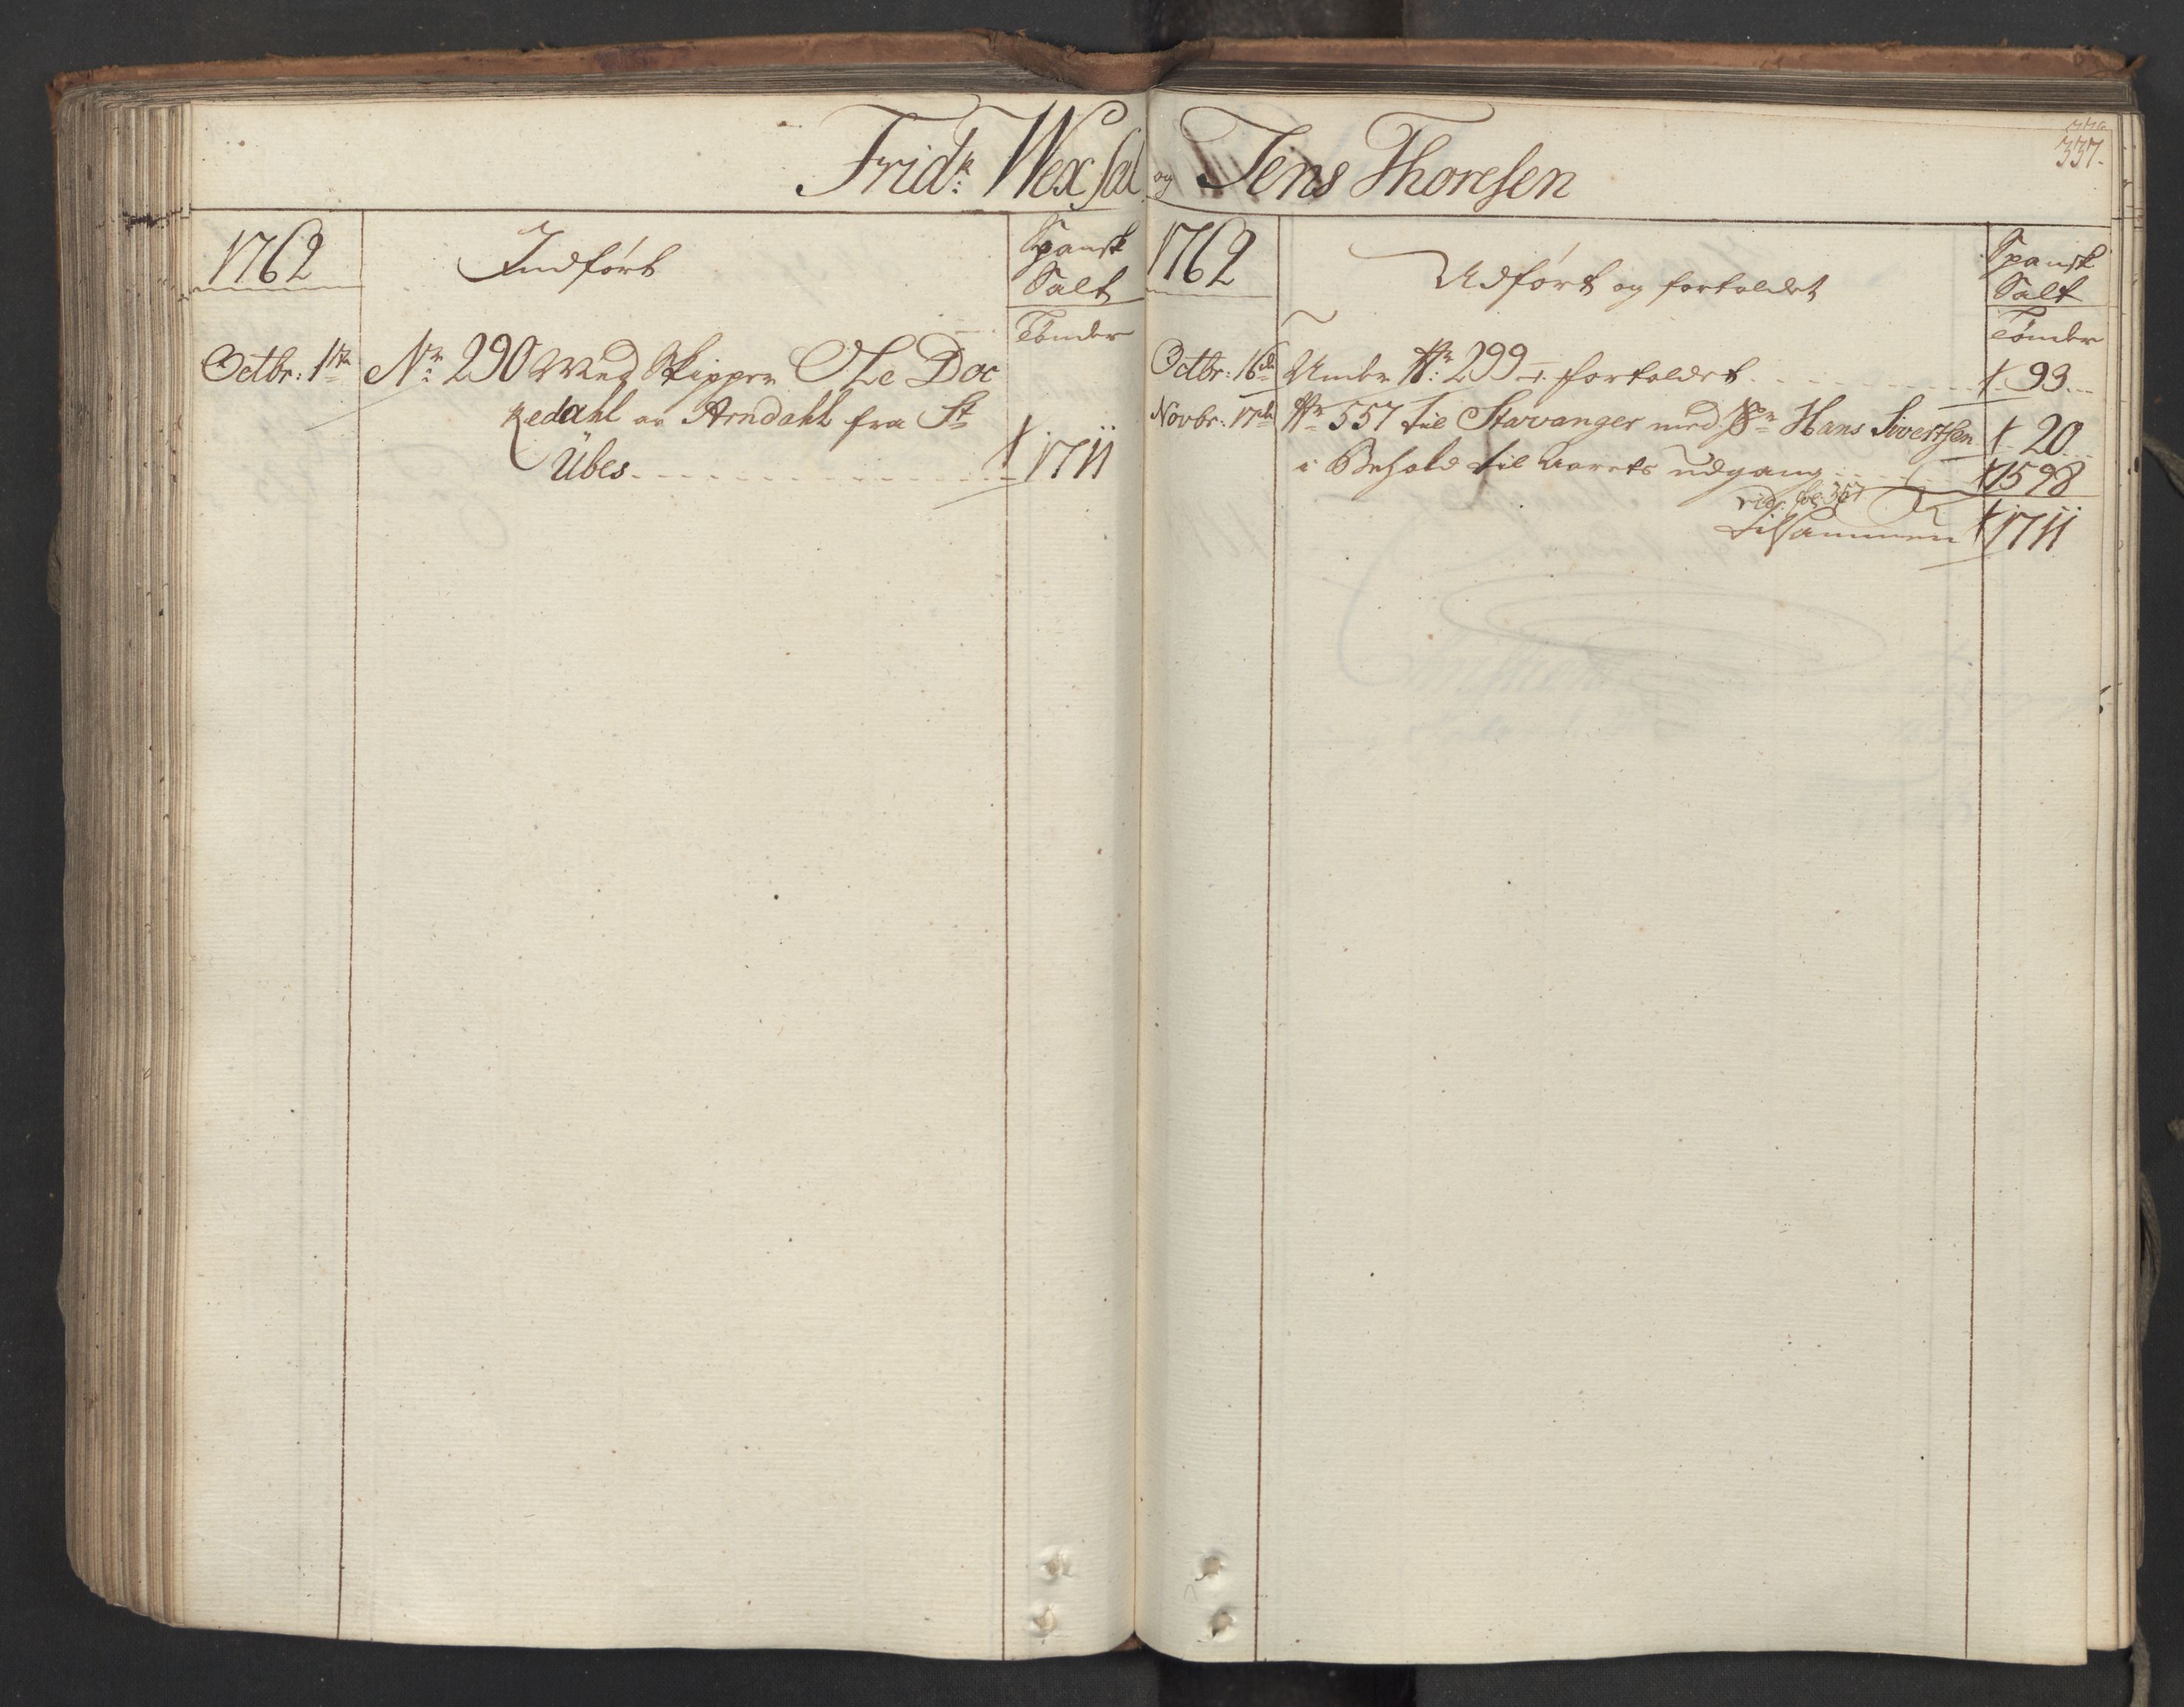 Fridr: Wexsal og Jens Thoresen
337.
1762
Indført
Spansk
Salt
Tønder
Octbr: 1te No: 290 Med Skipper Ole Doc
kedahl av Arndahl fra St
Übes 1711
1762
Udført og fortoldet
Spansk
Salt
Tønder
Octbr: 16de Under No: 299 fortoldet 93
Novbr: 17de No 557 til Stavanger med Sr Hans Sivertsen 20
i Behold til aarets udgang 1598
vid: fol: 357
Tilsammen 1711